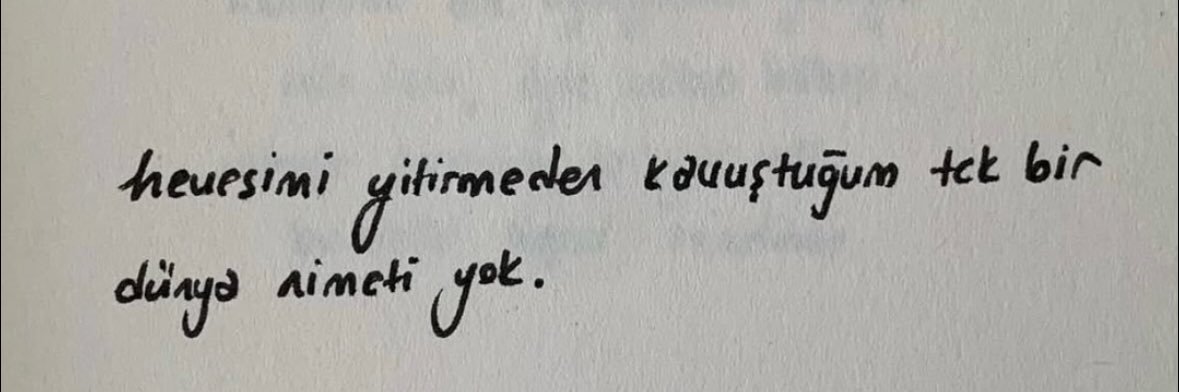 hevesimi yitirmeden kavuştuğum tek bir
dünya nimeti yok.